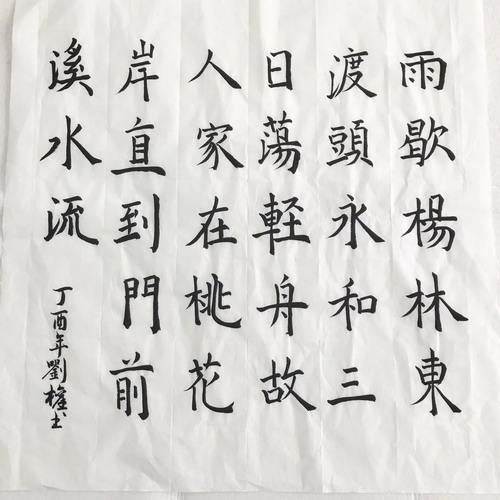 雨歇楊林東
渡頭永和三
日蕩軽舟故
人家在桃花
岸直到門前
溪水流
丁酉年劉權書